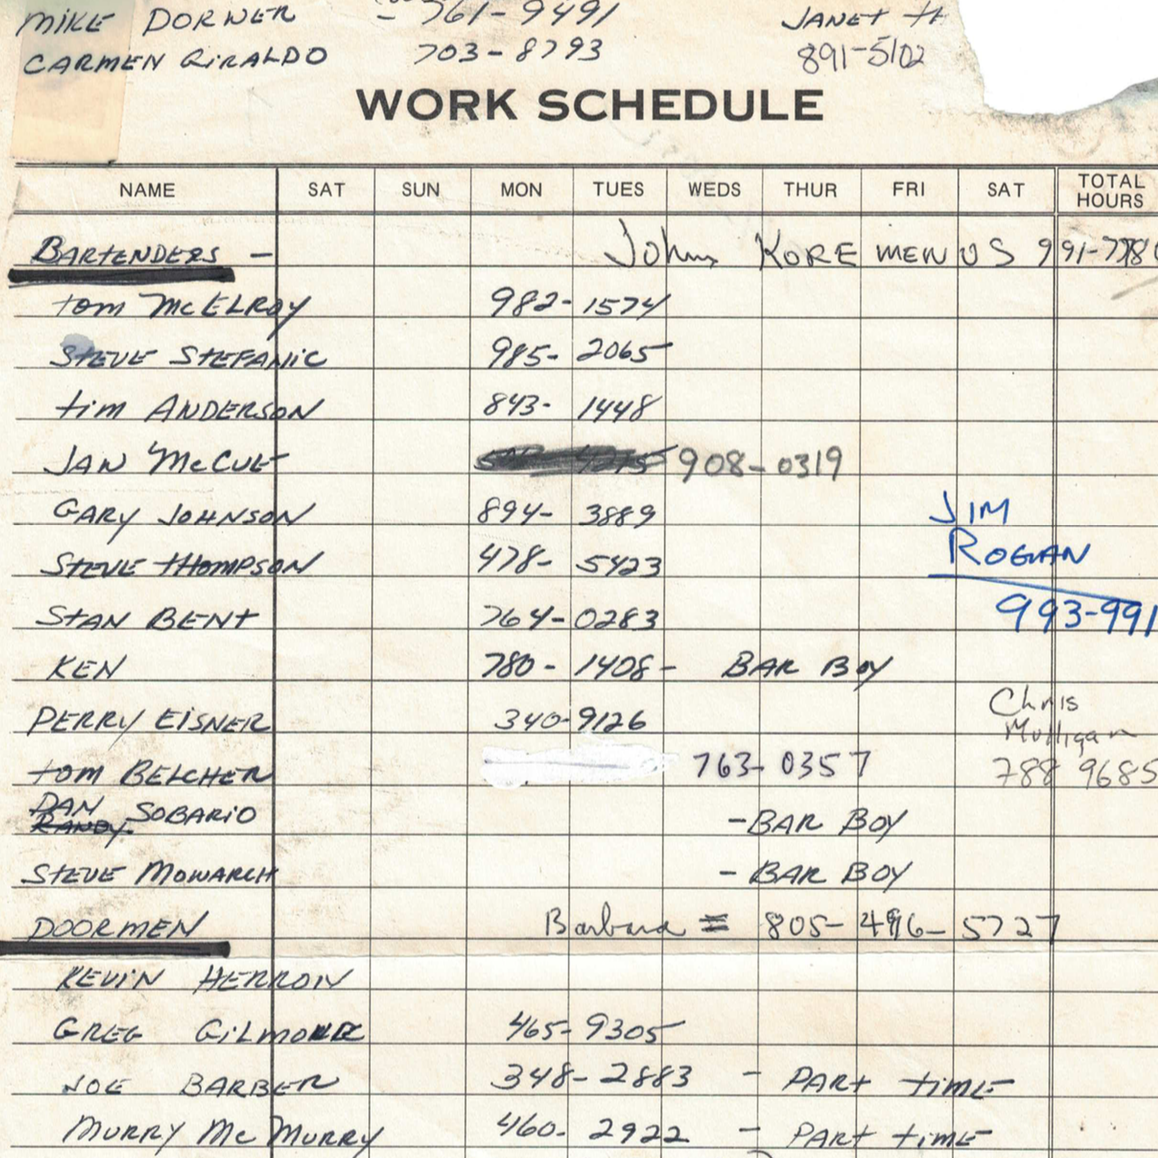 MIKE DORNER - 761-9491 JANET H
CARMEN GIRALDO 703-8793 891-5102
WORK SCHEDULE
NAME SAT SUN MON TUES WEDS THUR FRI SAT TOTAL HOURS
BARTENDERS - John KOREMENUS 991-778
TOM McELROY 982-1574
STEVE STEFANIC 985-2065
TIM ANDERSON 843-1448
JAN McCUE 908-0319
GARY JOHNSON 894-3889 JIM
STEVE THOMPSON 478-5423 ROGAN
STAN BENT 764-0283 993-991
KEN 780-1408- BAR BOY
PERRY EISNER 340-9126 Chris Mulligan
TOM BELCHER 763-0357 788 9685
DAN RANDY SOBARIO - BAR BOY
STEVE MOWARCH - BAR BOY
DOORMEN Barbara = 805-496-5727
KEVIN HERRON
GREG GILMORE 465-9305
JOE BARBER 348-2883 - PART TIME
MURRY McMURRY 460-2922 - PART TIME